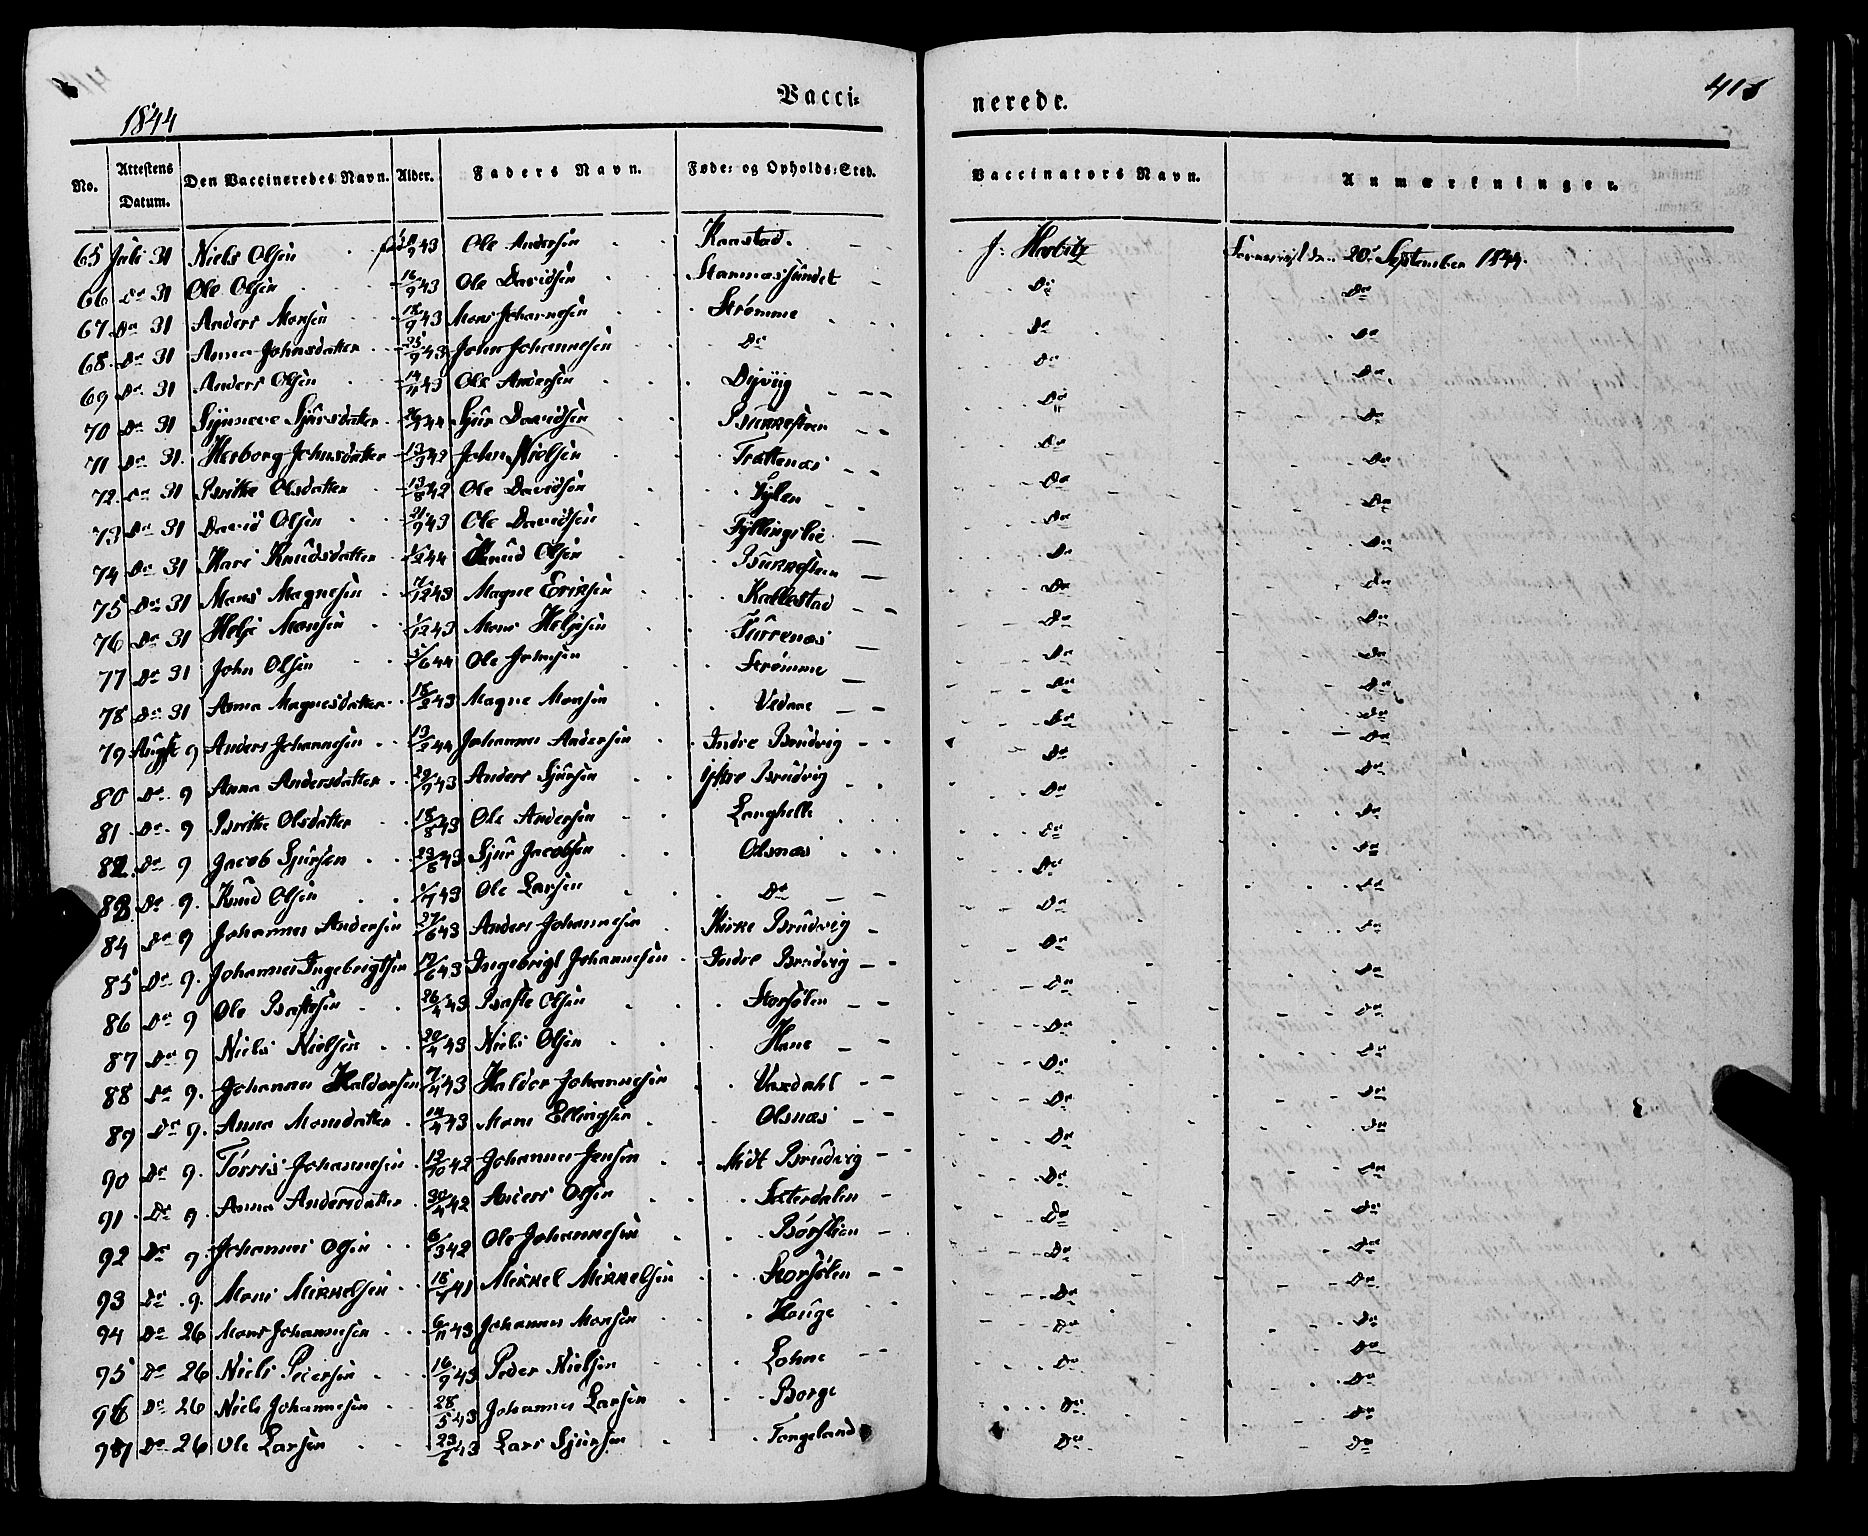 1844
Vacci-
nerede.
No. Attestens Datum. Den Vaccineredes Navn. Alder. Faders Navn. Føde- og Opholds-Sted. Vaccinators Navn. Anmærkninger.
65 Juli 31 Niels Olsen 43 Ole Andersen J. Herbitz 20 September 1844.
66 Do 31 Ole Olsen 16/9 43 Ole Davidsen Stammessundet Do Do
67 Do 31 Anders Monsen 18/9 43 Mons Johannesen Strømme Do Do
68 Do 31 Anna Johnsdatter 25/9 43 John Johannesen Do Do Do
69 Do 31 Anders Olsen 14/11 43 Ole Andersen Dyvig Do Do
70 Do 31 Synneve Sjursdatter 44 Sjur Davidsen Do Do
71 Do 31 Herborg Johnsdatter 13/9 42 John Nielsen Trættenæs Do Do
72 Do 31 Brithe Olsdatter 13/8 42 Ole Davidsen Do Do
73 Do 31 David Olsen 21/9 43 Ole Davidsen Fyllingslie Do Do
74 Do 31 Kari Knudsdatter 44 Knud Olsen Do Do
75 Do 31 Mons Magnesen 7/12 43 Magne Eriksen Kallestad Do Do
76 Do 31 Helje Monsen 1/12 43 Mons Helgesen Furrenæs Do Do
77 Do 31 John Olsen 1/6 44 Ole Johnsen Strømme Do Do
78 Do 31 Anna Magnesdatter 43 Magne Monsen Vedaae Do Do
79 Augst 9 Anders Johannesen 13/2 44 Johannes Andersen Indre Brudvig Do Do
80 Do 9 Anna Andersdatter 29/9 43 Anders Sjursen Ytre Brudvig Do Do
81 Do 9 Brithe Olsdatter 18/8 43 Ole Andersen Langhelle Do Do
82 Do 9 Jacob Sjursen 23/8 43 Sjur Jacobsen Olsnæs Do Do
83 Do 9. Knud Olsen 1/7 43 Ole Larsen Do Do Do
84 Do 9 Johannes Andersen 27/6 43 Anders Johannesen Kirke Brudvig Do Do
85 Do 9. Johannes Ingebrigtsen 17/6 43 Ingebrigt Johannesen Indre Brudvig Do Do
86 Do 9 Ole Bastesen 26/4 43 Baste Olsen Storsølen Do Do
87 Do 9 Niels Nielsen 20/4 43 Niels Olsen Hane Do Do
88 Do 9. Johannes Haldorsen 7/4 43 Haldor Johannesen Vaxdahl Do Do
89 Do 9. Anna Monsdatter 14/4 43 Mons Ellingsen Olsnæs Do Do
90 Do 9. Torris Johannesen 12/10 42 Johannes Jensen Midt Brudvig Do Do
91 Do 9. Anna Andersdatter 30/4 42 Anders Olsen Sæterdalen Do Do
92 Do 9. Johannes Olsen 6/3 42 Ole Johannesen Børslien Do Do
93 Do 9. Mons Mikkelsen 41 Mikkel Mikkelsen Storsølen Do Do
94 Do 26 Mons Johannesen 6/11 43 Johannes Monsen Houge Do Do
95 Do 26 Niels Pedersen 16/9 43 Peder Nielsen Lohne Do Do
96 Do 26 Niels Johannesen 28/5 43 Johannes Larsen Borge Do Do
97 Do 26 Ole Larsen 23/6 43 Lars Sjursen Tangeland Do Do